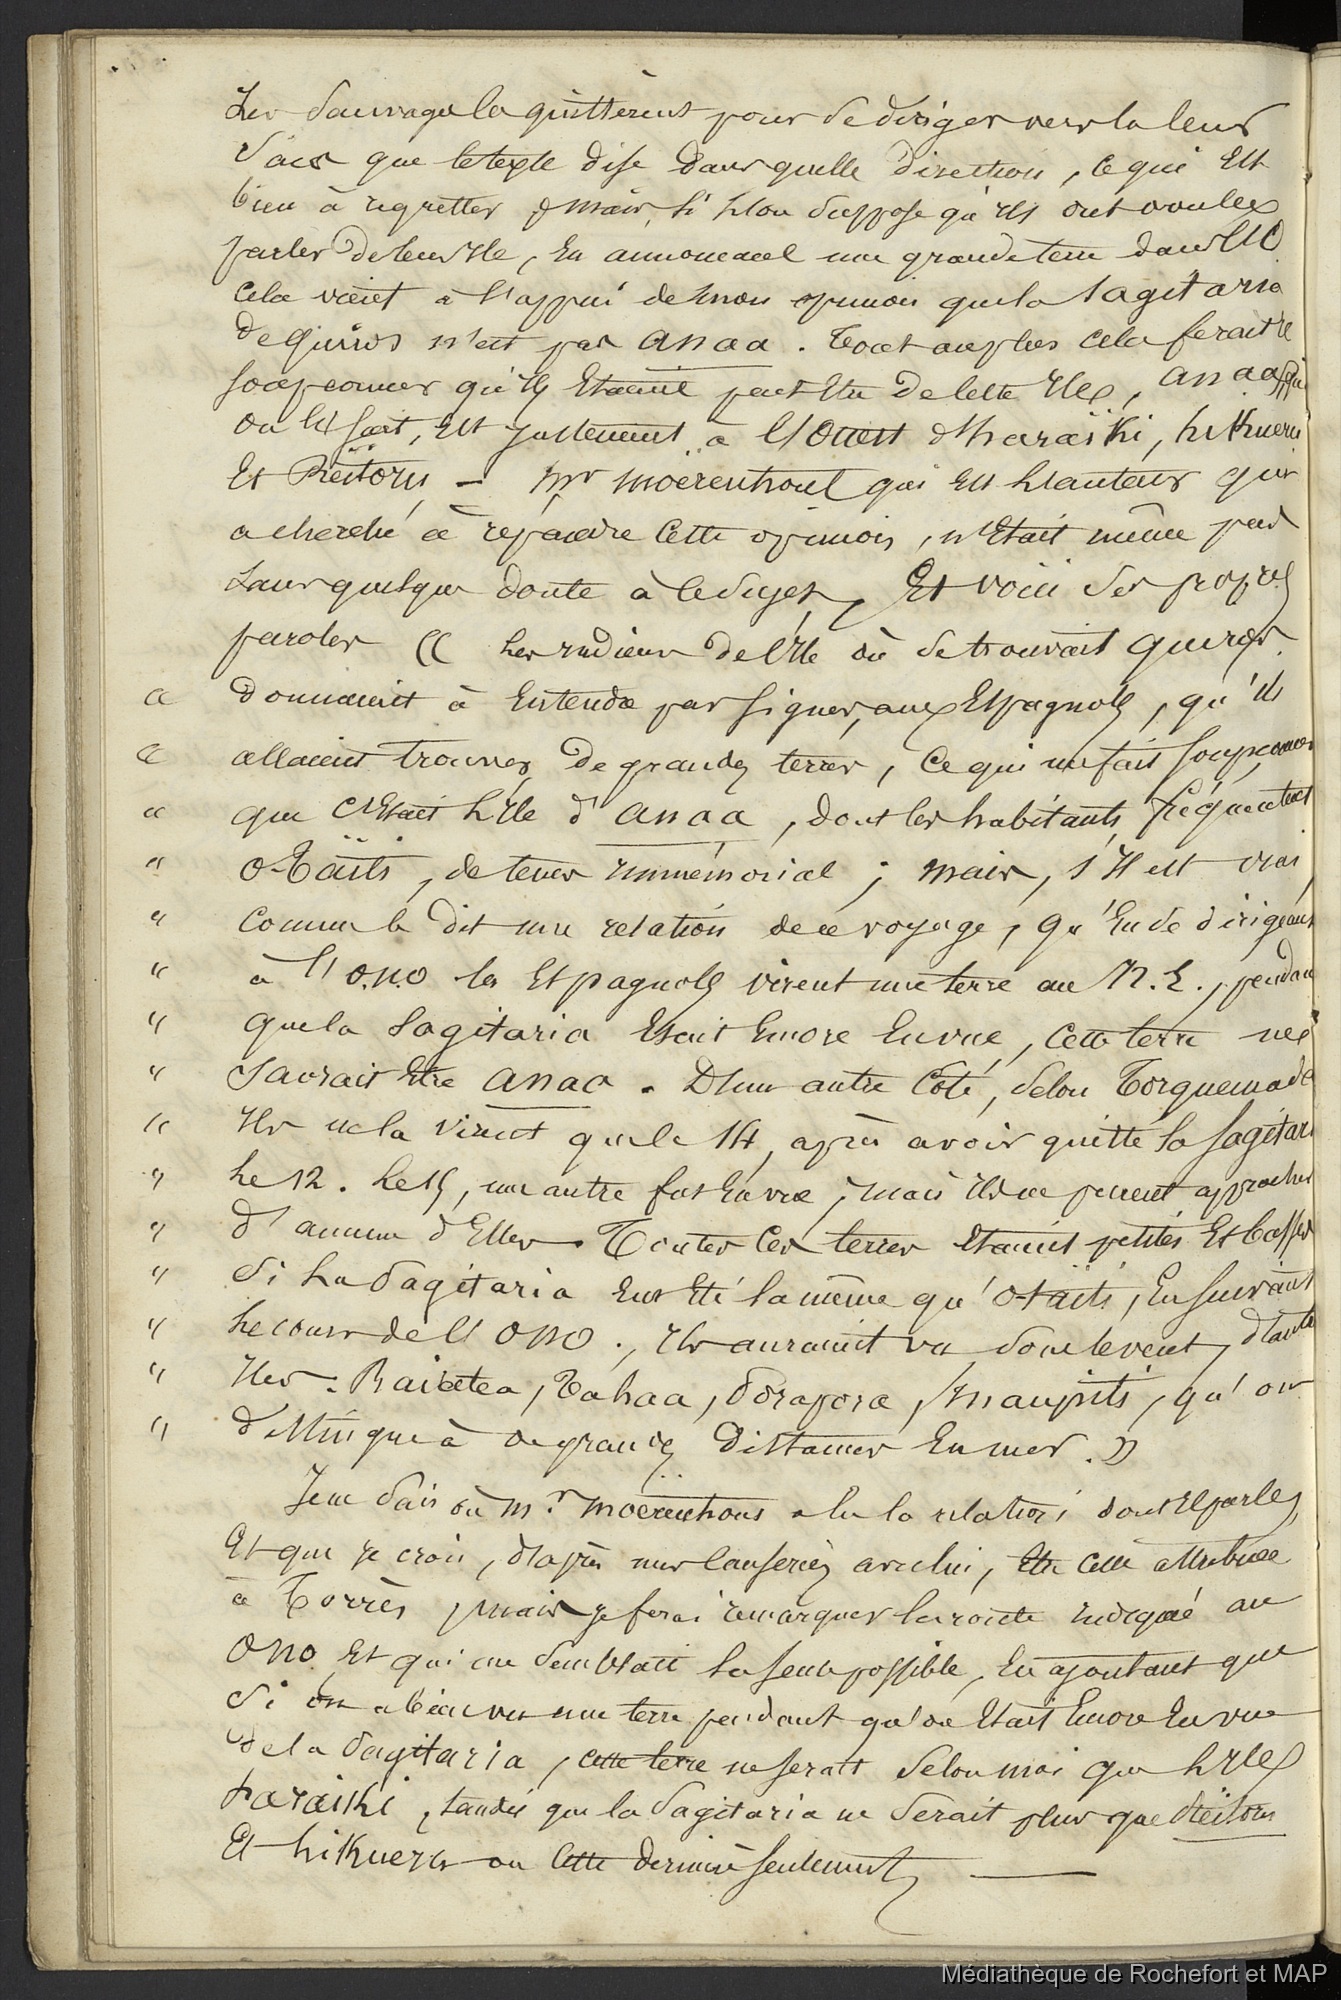 Les Sauvages les quittèrent pour se diriger vers la leur
Sans que le texte dise dans quelle direction, ce qui Est
bien à regretter; mais, si l'on suppose qu'ils ont voulu
parler de leur Ile, En annonçant une grande terre dans l'O
Cela vient à l'appui de mon opinion que la Sagitaria
de Quiros n'est pas anaa. Tout au plus cela ferait il
soupçonner qu'ils Etaient peut Etre de cette Ile, anaa
on le sait, Est justement à l'Ouest d'haraïki, hikueru
Et Réitoru — Mr Moërenhout qui Est l'auteur qui
a cherché à répandre cette opinion, n'Etait même pas
sans quelque doute à ce sujet, Et voici ses propres
paroles « Les indiens de l'Ile où se trouvait Quiros
« donnaient à Entendre par signes, aux Espagnols, qu'ils
« allaient trouver de grandes terres, Ce qui me fait soupçonner
« que c'Etait l'Ile d'anaa, dont les habitants fréquentent
" O-Taïti, de tems immémorial; mais, s'Il est vrai
" Comme le dit une relation de ce voyage, qu'En se dirigeant
" à l'O.N.O les Espagnols virent une terre au N.E., pendant
" que la Sagitaria Etait Encore En vue, Cette terre ne
" Saurait Etre anaa. D'un autre Côté, selon Torquemada
" Ils ne la virent que le 14, après avoir quitté la Sagitari
" Le 12. Le 15, une autre fut En vue; mais Ils ne purent approcher
" d'aucune d'Elles. Toutes Ces terres Etaient petites Et basses
" Si La Sagitaria Eut Eté la même qu'O-taïti, En suivant
" Le cours de l'ONO., Ils auraient vu, sous le vent, d'autres
" Iles. Raiatea, Tahaa, Borapora, Maupiti, qu'on
" distingue à de grandes distances En mer. »
Je ne sais où Mr. Moërenhout a lu la relation dont Il parle,
Et que je crois, d'après mes causeries avec lui, Etre celle attribuée
à Torrès; mais je ferai remarquer la route indiquée au
ONO Et qui me semblait la seule possible, En ajoutant que
Si on a bien vu une terre pendant qu'on Etait Encore En vue
de la Sagitaria, cette terre ne serait selon moi que l'Ile
haraiki, tandis que la Sagitaria ne serait plus que Réitoru
Et hikueru ou cette dernière seulement —
Médiathèque de Rochefort et MAP